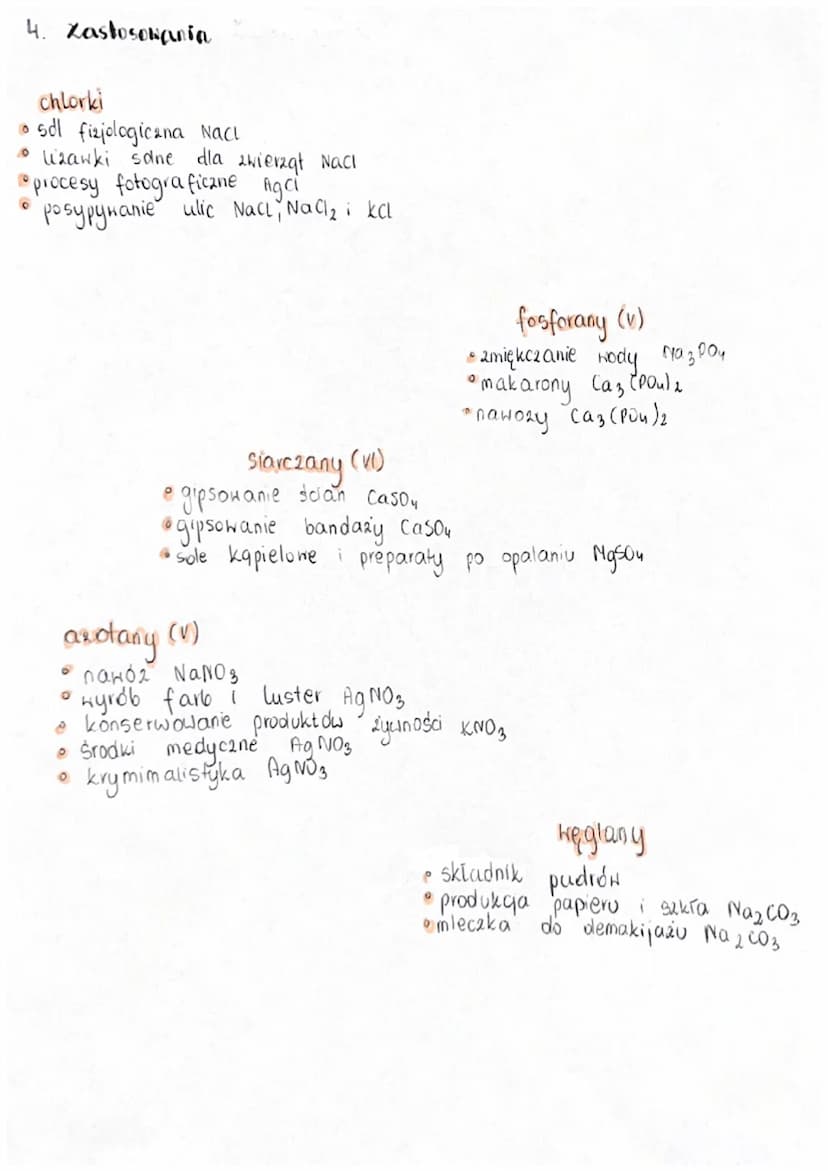 4. Zastosowania
chlorki
• sól fizjologiczna NaCl
• lizawki solne dla zwierząt NaCl
• procesy fotograficzne AgCl
• posypywanie ulic NaCl, NaCl₂ i KCl
fosforany (V)
• zmiękczanie wody Na₃PO₄
• makarony Ca₃(PO₄)₂
• nawozy Ca₃(PO₄)₂
siarczany (VI)
• gipsowanie ścian CaSO₄
• gipsowanie bandaży CaSO₄
• sole kąpielowe i preparaty po opalaniu MgSO₄
azotany (V)
• nawóz NaNO₃
• wyrób farb i luster AgNO₃
• konserwowanie produktów żywności KNO₃
• środki medyczne AgNO₃
• krymimalistyka AgNO₃
węglany
• składnik pudrów
• produkcja papieru i szkła Na₂CO₃
• mleczka do demakijażu Na₂CO₃